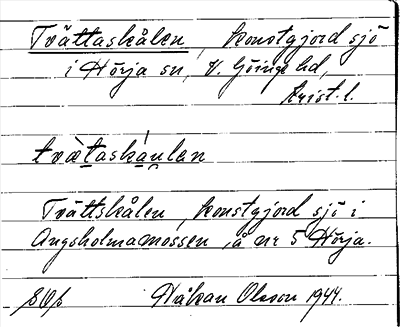 Tvättaskålen, konstgjord sjö
i Hörja sn, V. Göinge hd,
Krist. l.
tvätaskaulen
Tvättskålen, konstgjord sjö i
Ängsholmamossen, å nr 5 Hörja.
Håkan Olsson 1944.